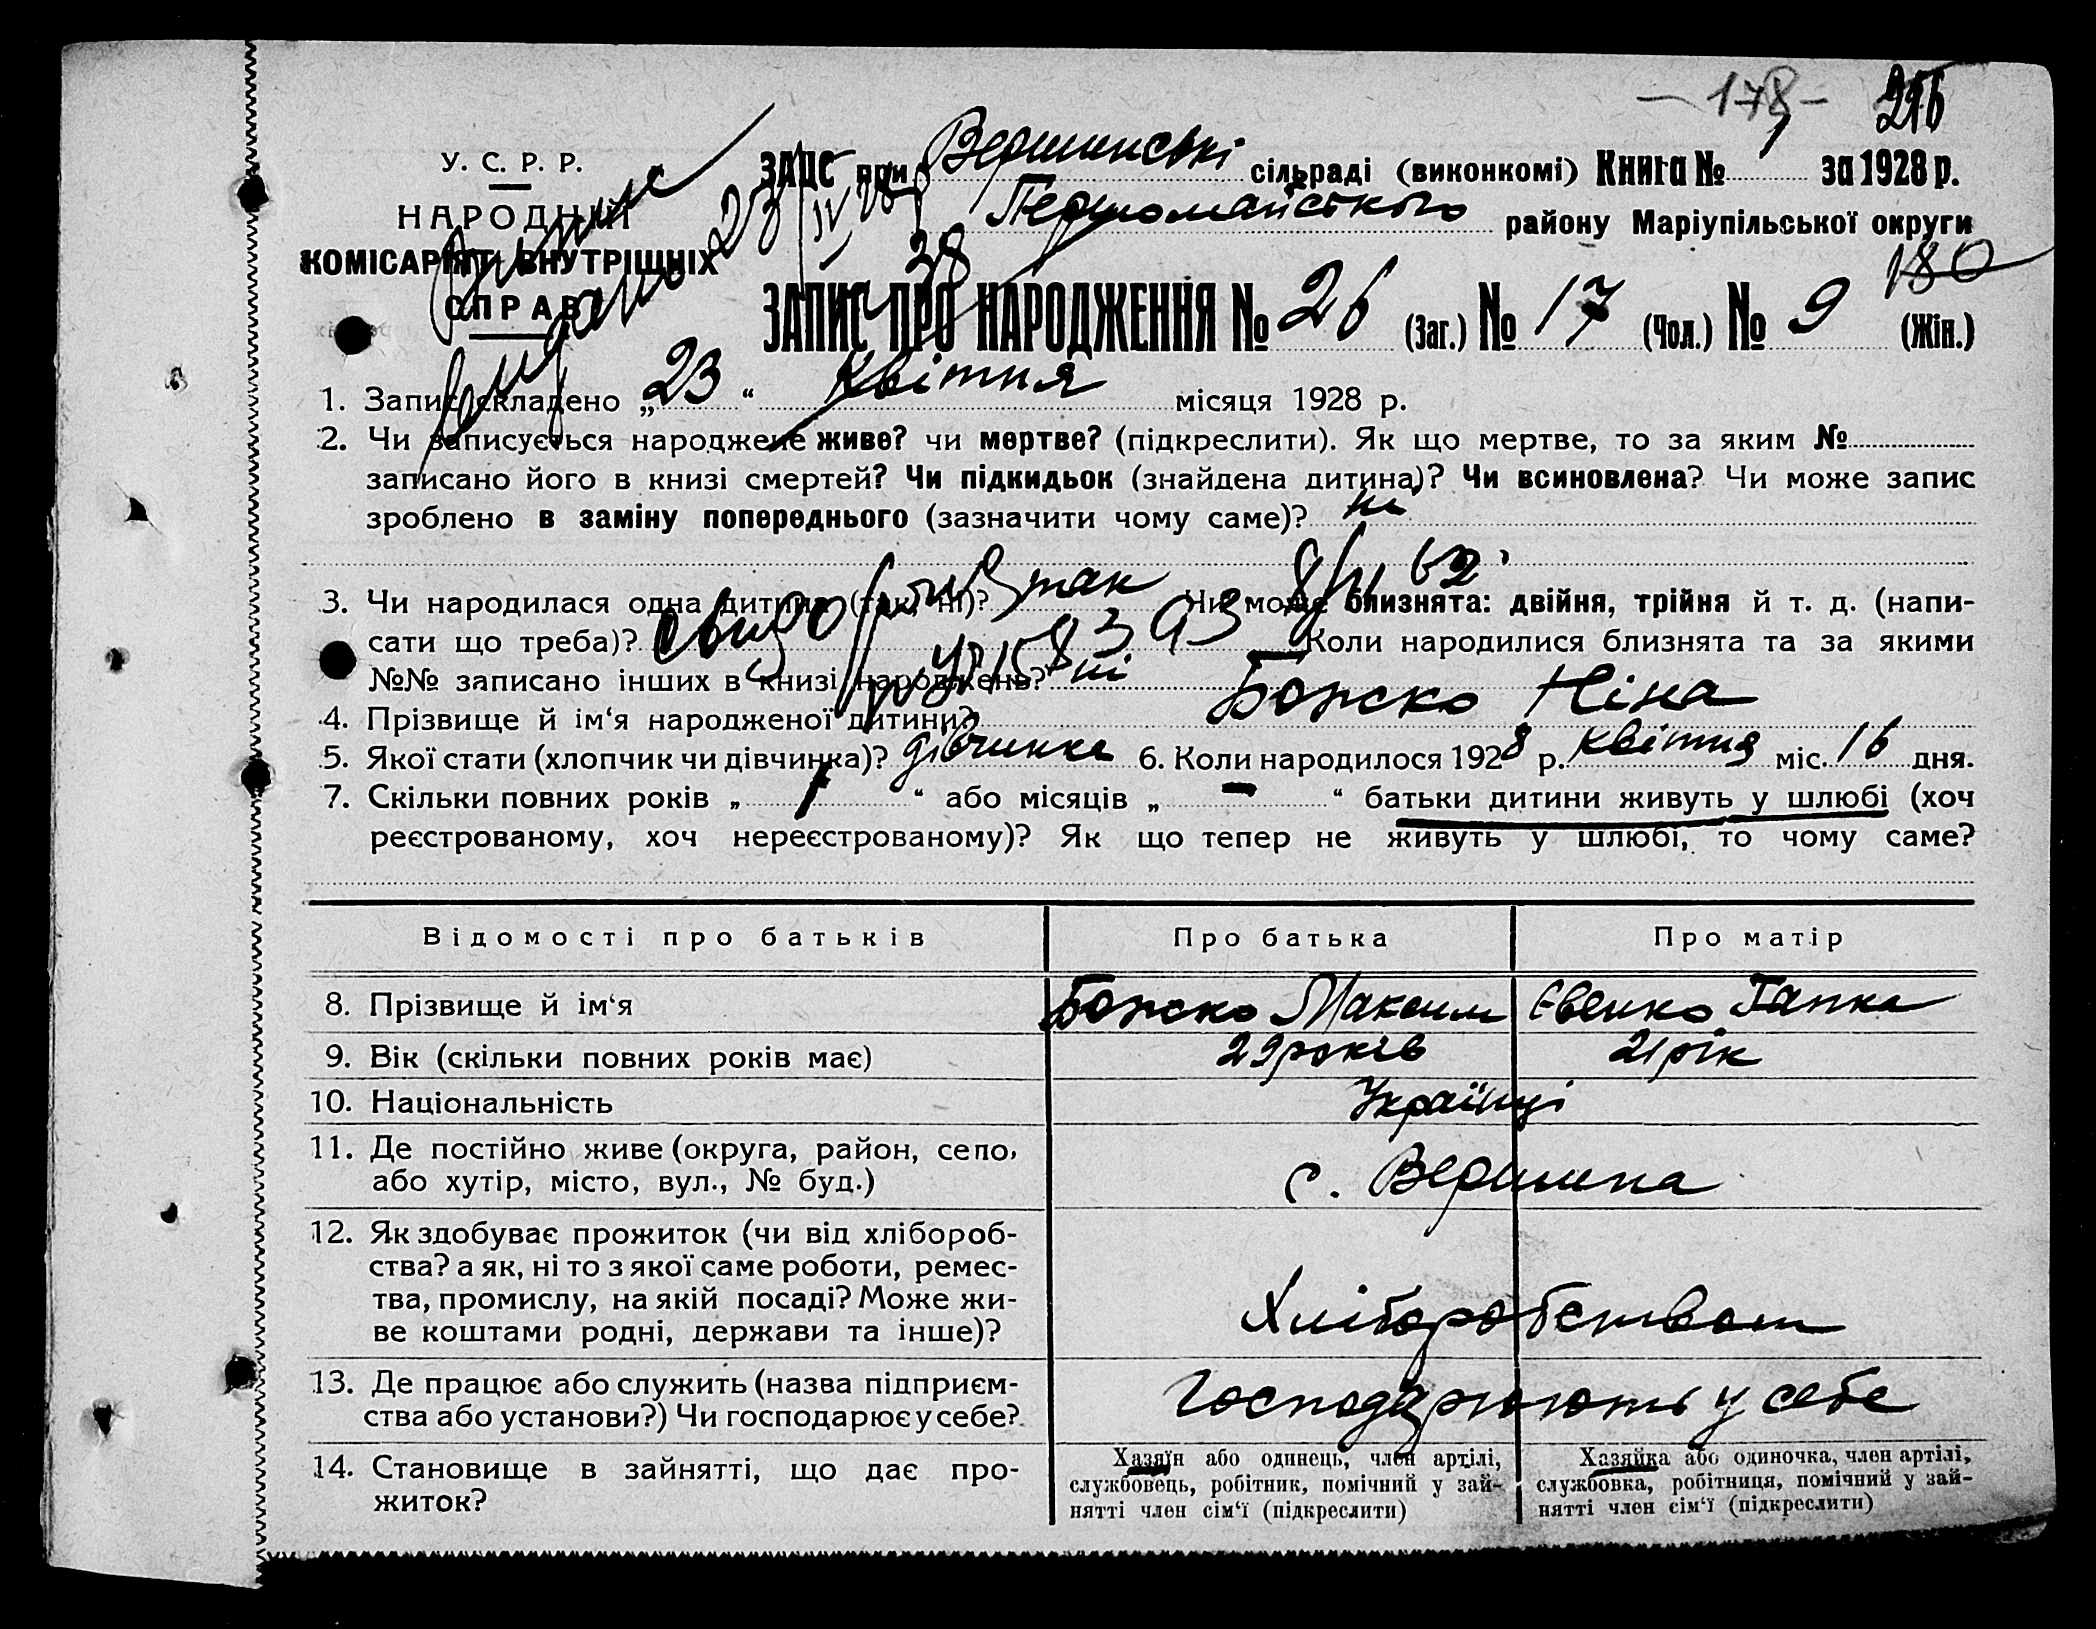 - 178 -
216
У. С. Р. Р.
НАРОДНІЙ
КОМІСАРІЯТ ВНУТРІШНІХ
СПРАВ
ЗАЦС при Вершинські сільраді (виконкомі) Книга № 1 за 1928 р.
Першомайського району Маріупільської округи
180
ЗАПИС ПРО НАРОДЖЕННЯ № 26 (Заг.) № 17 (Чол.) № 9 (Жін.)
1. Запис складено „ 23 “ Квітня місяця 1928 р.
2. Чи записується народжене живе? чи мертве? (підкреслити). Як що мертве, то за яким №
записано його в книзі смертей? Чи підкидьок (знайдена дитина)? Чи всиновлена? Чи може запис
зроблено в заміну попереднього (зазначити чому саме)? ні
3. Чи народилася одна дитина (так, ні)? так Чи може близнята: двійня, трійня й т. д. (напи-
сати що треба)? Коли народилися близнята та за якими
№№ записано інших в книзі народжень? ні
4. Прізвище й ім‘я народженої дитини? Божко Ніна
5. Якої стати (хлопчик чи дівчинка)? дівчинка 6. Коли народилося 1928 р. квітня міс. 16 дня.
7. Скільки повних років „ 1 “ або місяців „ - “ батьки дитини живуть у шлюбі (хоч
реєстрованому, хоч нереєстрованому)? Як що тепер не живуть у шлюбі, то чому саме?
Відомості про батьків Про батька Про матір
8. Прізвище й ім‘я Божко Максим Євенко Ганна
9. Вік (скільки повних років має) 29 років 21 рік
10. Національність Українці
11. Де постійно живе (округа, район, село,
або хутір, місто, вул., № буд.) с. Вершина
12. Як здобуває прожиток (чи від хлібороб-
ства? а як, ні то з якої саме роботи, ремес-
тва, промислу, на якій посаді? Може жи-
ве коштами родні, держави та інше)? Хліборобством
13. Де працює або служить (назва підприєм-
ства або установи?) Чи господарює у себе? Господарюють у себе
14. Становище в зайнятті, що дає про-
житок?
Хазяїн або одинець, член артілі,
службовець, робітник, помічний у зай-
нятті член сім‘ї (підкреслити)
Хазяйка або одиночка, член артілі,
службовка, робітниця, помічний у зай-
нятті член сім‘ї (підкреслити)